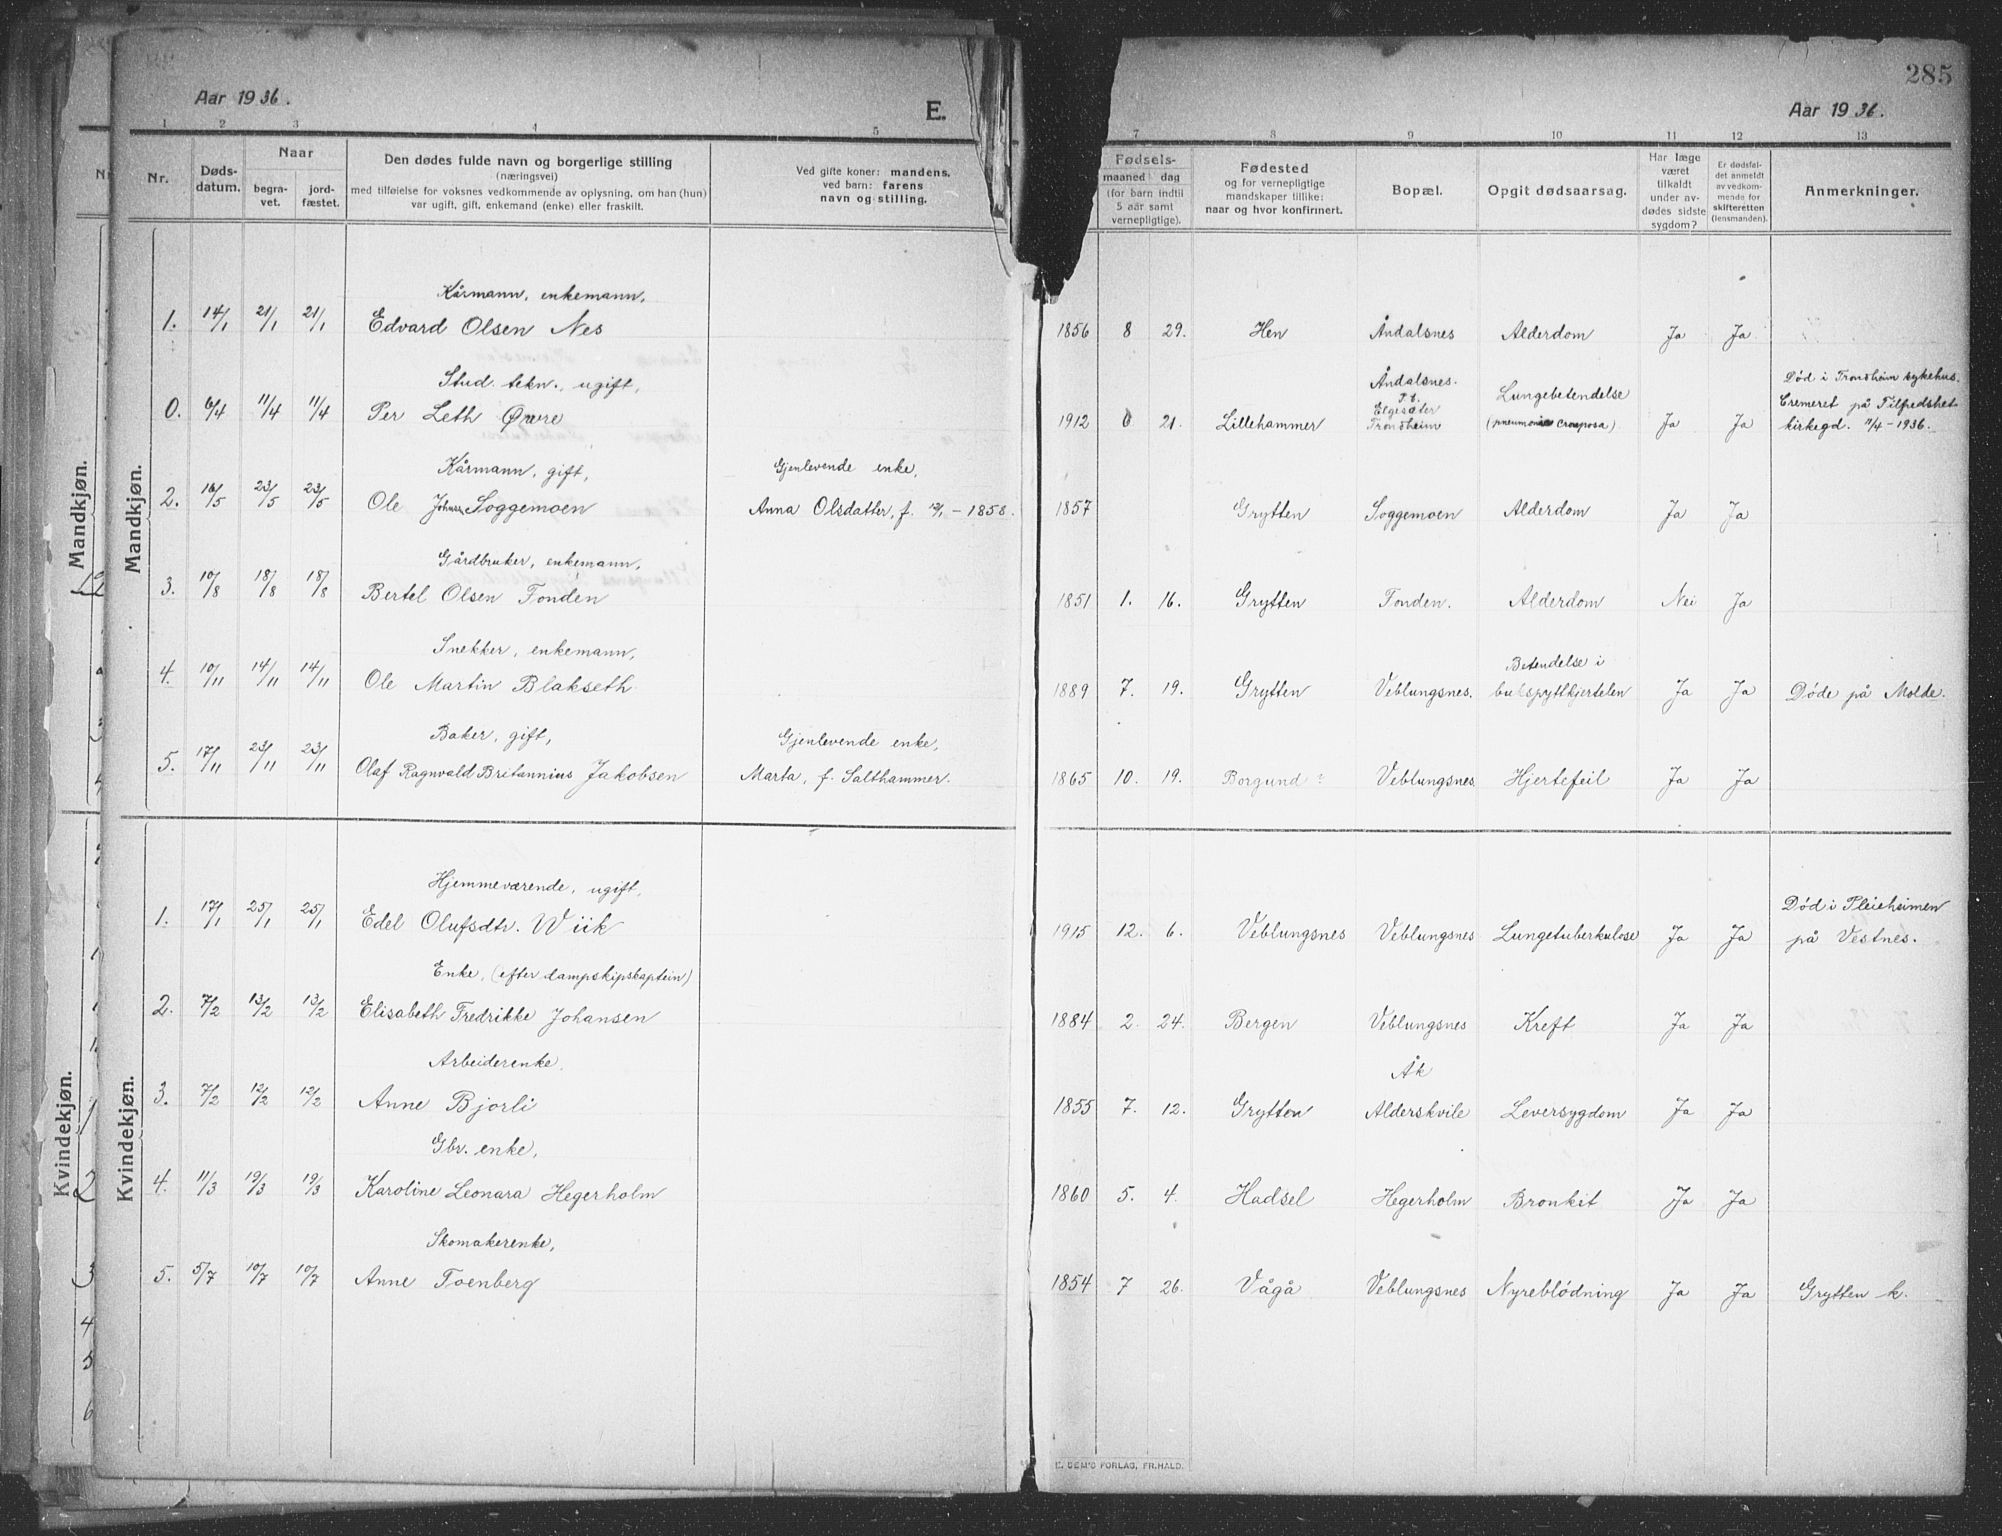 285
Aar 1936.
E.
Aar 1936.
1 2 3 4 5 7 8 9 10 11 12 13
Nr.
Døds-
datum.
Naar
begra-
vet.
jord-
fæstet.
Den dødes fulde navn og borgerlige stilling
(næringsvei)
med tilføielse for voksnes vedkommende av oplysning, om han (hun)
var ugift, gift, enkemand (enke) eller fraskilt.
Ved gifte koner: mandens.
ved barn: farens
navn og stilling.
Fødsels-
maaned dag
(for barn indtil
5 aar samt
vernepligtige).
Fødested
og for vernepligtige
mandskaper tillike:
naar og hvor konfirmert.
Bopæl.
Opgit dødsaarsag.
Har læge
været
tilkaldt
under av-
dødes sidste
sygdom?
Er dødsfal-
det anmeldt
av vedkom-
mende for
skifteretten
(lensmanden).
Anmerkninger.
Mandkjøn.
Mandkjøn.
Kårmann, enkemann,
1. 14/1 21/1 21/1 Edvard Olsen Nes 1856 8 29. Hen Åndalsnes Alderdom Ja Ja
Stud. tekn., ugift, Åndalsnes. Lungebetendelse Død i Trondheim sykehus.
P.t. Cremeret på Tilfredshet
0. 6/4 11/4 11/4 Per Leth Øvre 1912 6 21. Lillehammer Elgesæter Trondheim (pneumonia crouposa) Ja Ja kirkegd. 11/4-1936.
Kårmann, gift, Gjenlevende enke,
2. 16/5 23/5 23/5 Ole Soggemoen Anna Olsdatter, f. 12/1-1858. 1857 Grytten Soggemoen Alderdom Ja Ja
Gårdbruker, enkemann,
3. 10/8 18/8 18/8 Bertel Olsen Fonden 1851 1. 16. Grytten Fonden. Alderdom Nei Ja
Snekker, enkemann, Betendelse i
4. 10/11 14/11 14/11 Ole Martin Blakseth 1889 7. 19. Grytten Veblungsnes. bukspyttkjertelen Ja Ja Døde på Molde.
Baker, gift, Gjenlevende enke,
5. 17/11 23/11 23/11 Olaf Ragnvald Britannius Jakobsen Marta, f. Salthammer. 1865 10. 19. Borgund? Veblungsnes. Hjertefeil Ja Ja
Kvindekjøn.
Kvindekjøn.
Hjemmeværende, ugift, Død i Pleieheimen
1. 17/1 25/1 25/1 Edel Olufsdtr. Wiik 1915 12. 6. Veblungsnes Veblungsnes Lungetuberkulose Ja Ja på Vestnes.
Enke, (efter dampskipskaptein)
2. 7/2 13/2 13/2 Elisabeth Fredrikke Johansen 1884 2. 24. Bergen Veblungsnes Kreft Ja Ja
Arbeiderenke. Åk
3. 7/2 12/2 12/2 Anne Bjorli 1855 7. 12. Grytten Alderskvile Leversygdom Ja Ja
Gbr. enke,
4. 11/3 19/3 19/3 Karoline Leonara Hegerholm 1860 5. 4. Hadsel Hegerholm Bronkit Ja Ja
Skomakerenke,
5. 5/7 10/7 10/7 Anne Toenberg 1854 7 26. Vågå Veblungsnes Nyreblödning Ja Ja Grytten k.
FORLAG, FR.HALD.